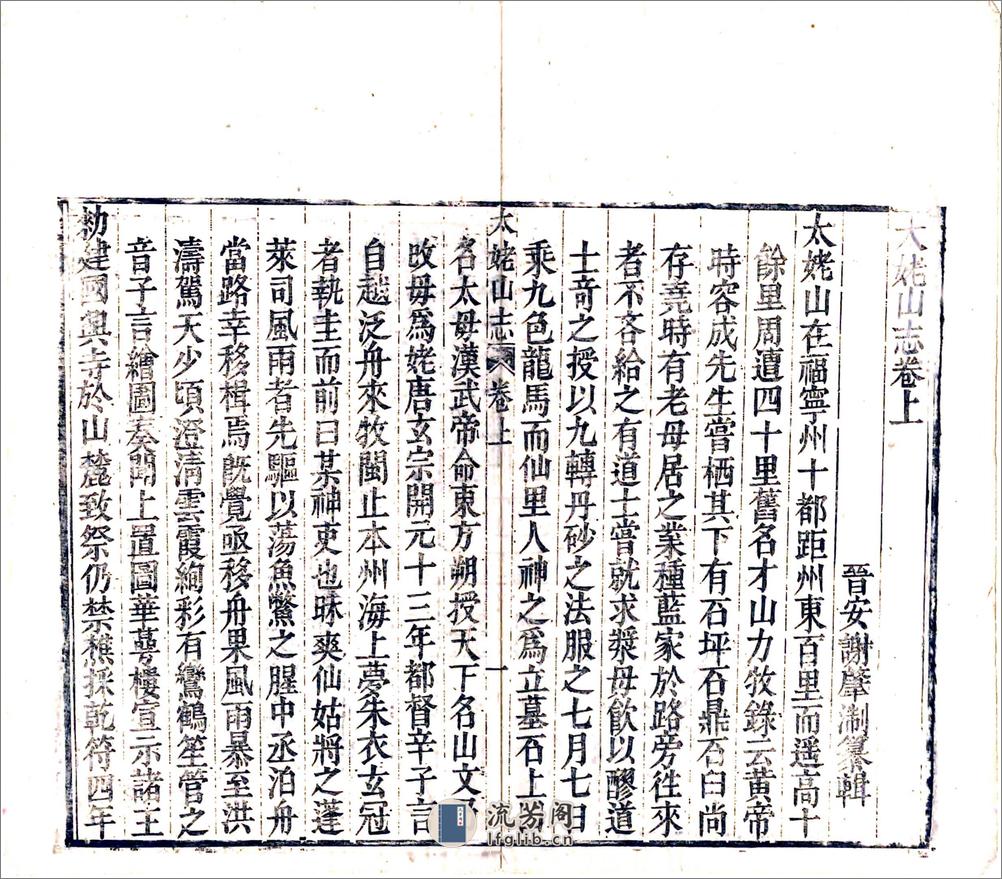 太姥山志卷上
晉安謝肇淛纂輯
太姥山在福寧州十都距州東百里而遥高十
餘里周遭四十里舊名才山力牧錄云黃帝
時容成先生嘗栖其下有石坪石鼎石臼尚
存堯時有老母居之業種藍家於路旁徃來
者不吝給之有道士嘗就求漿母飲以醪道
士竒之授以九轉丹砂之法服之七月七日
乘九色龍馬而仙里人神之爲立墓石上
太姥山志 卷上 一
名太母漢武帝命東方朔授天下名山文
改母爲姥唐玄宗開元十三年都督辛子言
自越泛舟來牧閩止本州海上夢朱衣玄冠
者執圭而前曰某神吏也昧爽仙姑將之蓬
萊司風雨者先驅以蕩魚鱉之腥中丞泊舟
當路幸移楫焉旣覺亟移舟果風雨暴至洪
濤駕天少頃澄清雲霞絢彩有鸞鶴笙管之
音子言繪圖奏聞上置圖華蕚樓宣示諸王
勑建國興寺於山麓致祭仍禁樵採乾符四年
流芳阁
lfglib.cn